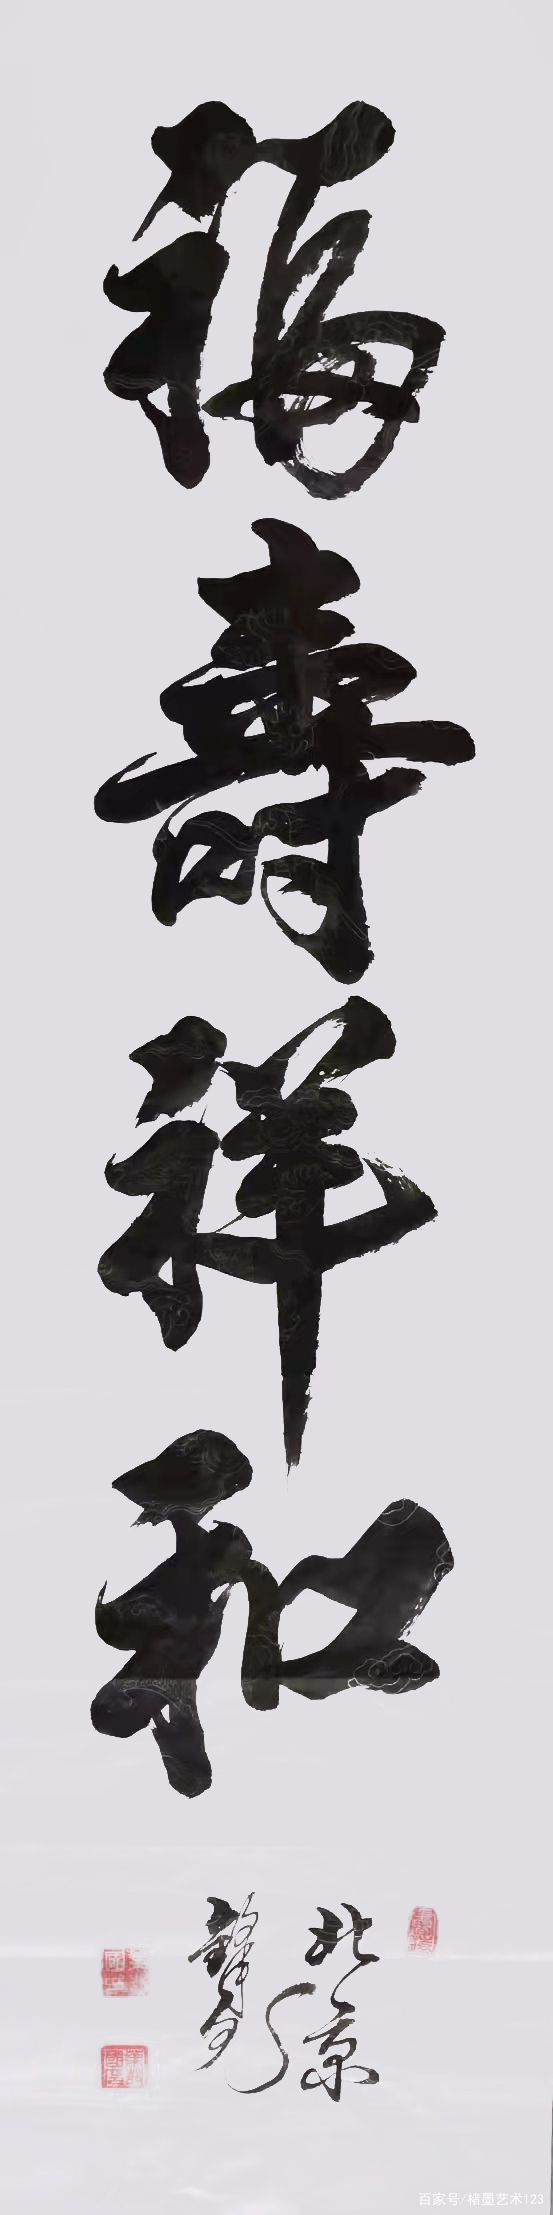 福壽祥和
北京
百家号/楮墨艺术123